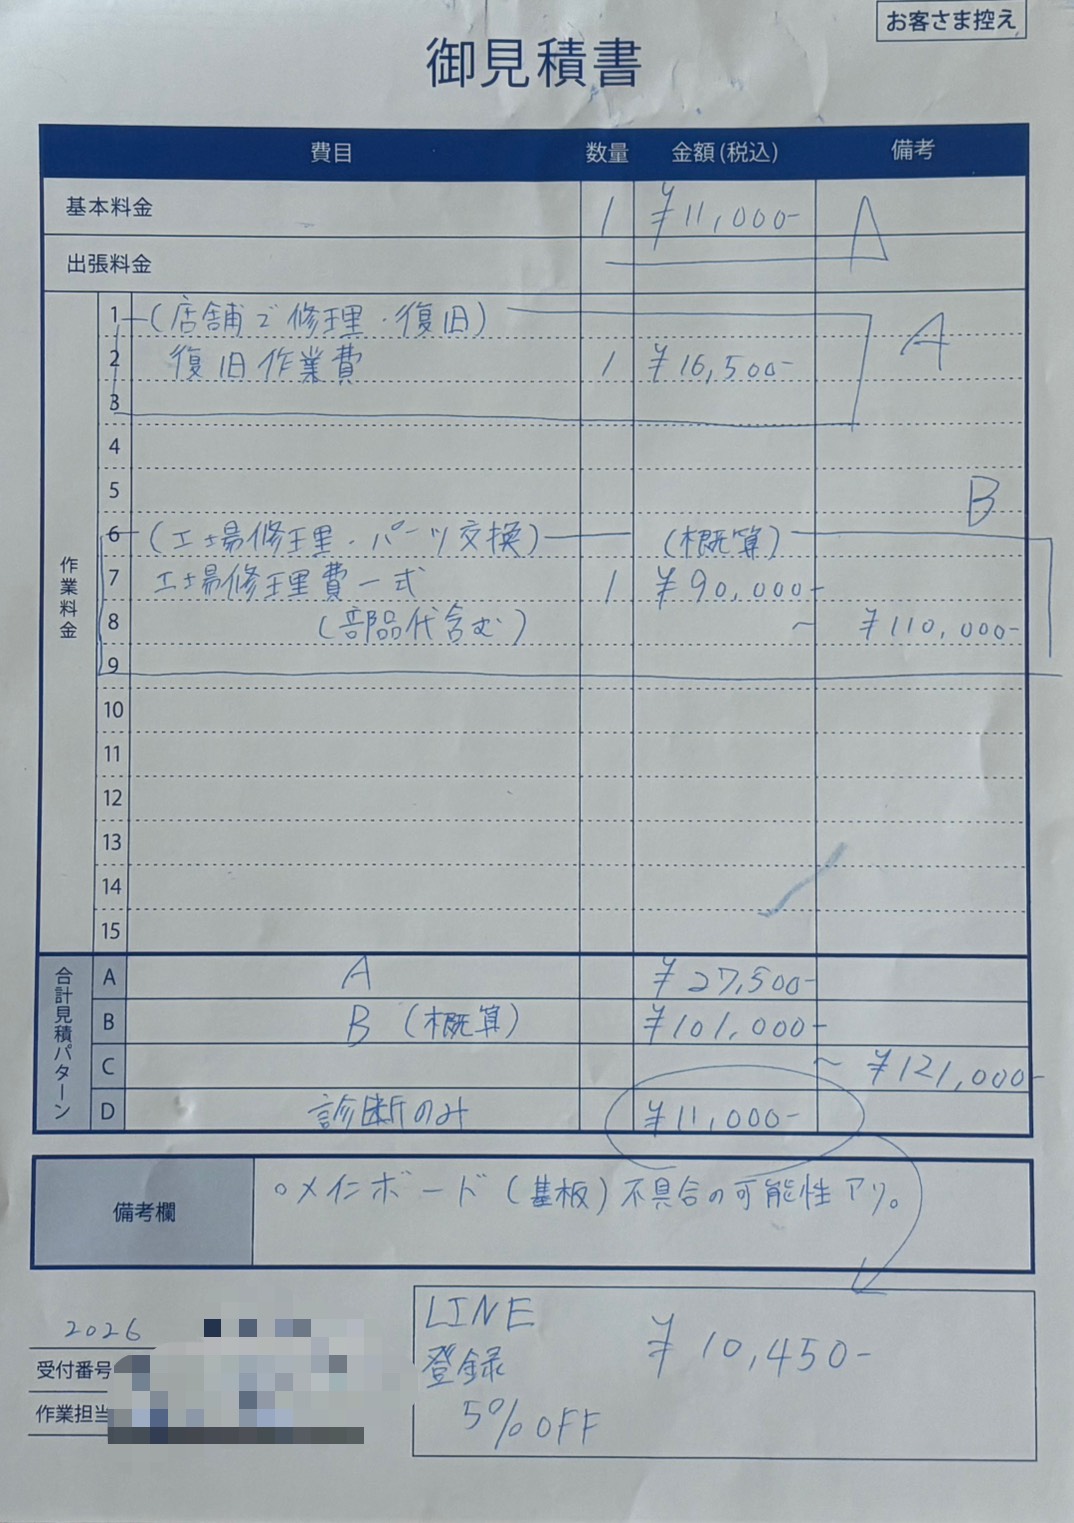 お客さま控え
御見積書
費目 数量 金額(税込) 備考
基本料金 1 ¥11,000- A
出張料金
作業料金
1 (店舗で修理・復旧)
2 復旧作業費 1 ¥16,500- A
3
4
5
B
6 (工場修理・パーツ交換) (概算)
7 工場修理費一式 1 ¥90,000-
8 (部品代含む) ~ ¥110,000-
9
10
11
12
13
14
15
合計見積パターン
A A ¥27,500-
B B (概算) ¥101,000-
C ~ ¥121,000-
D 診断のみ ¥11,000-
備考欄 ○メインボード(基板)不具合の可能性アリ。
LINE
登録 ¥10,450-
5%OFF
2026
受付番号
作業担当